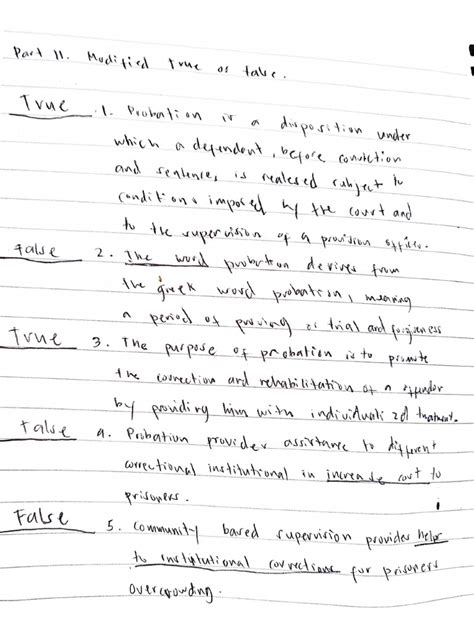 Part II. Modified True or false.
True 1. Probation is a disposition under
which a dependent, before conviction
and sentence, is realesed subject to
conditions imposed by the court and
to the supervision of a provision officer.
False 2. The word probation derives from
the greek word probation, meaning
a period of proving or trial and forgiveness
True 3. The purpose of probation is to promote
the correction and rehabilitation of a offender
by providing him with individualized treatment.
False 4. Probation provider assistance to different
correctional institutional in increase cost to
prisoners.
False 5. Community based supervision provides help
to institutional corrections for prisoners
overcrowding.